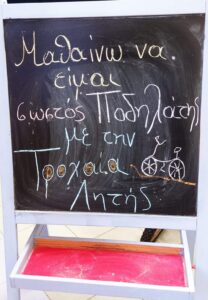 Μαθαίνω να
είμαι
σωστός Ποδηλάτης
με την
Τροχαια
Λητής